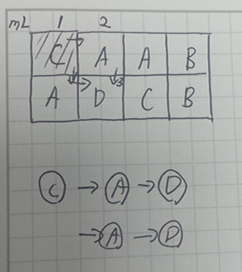 mL 1 2
C A A B
A D C B
C → A → D
→ A → D